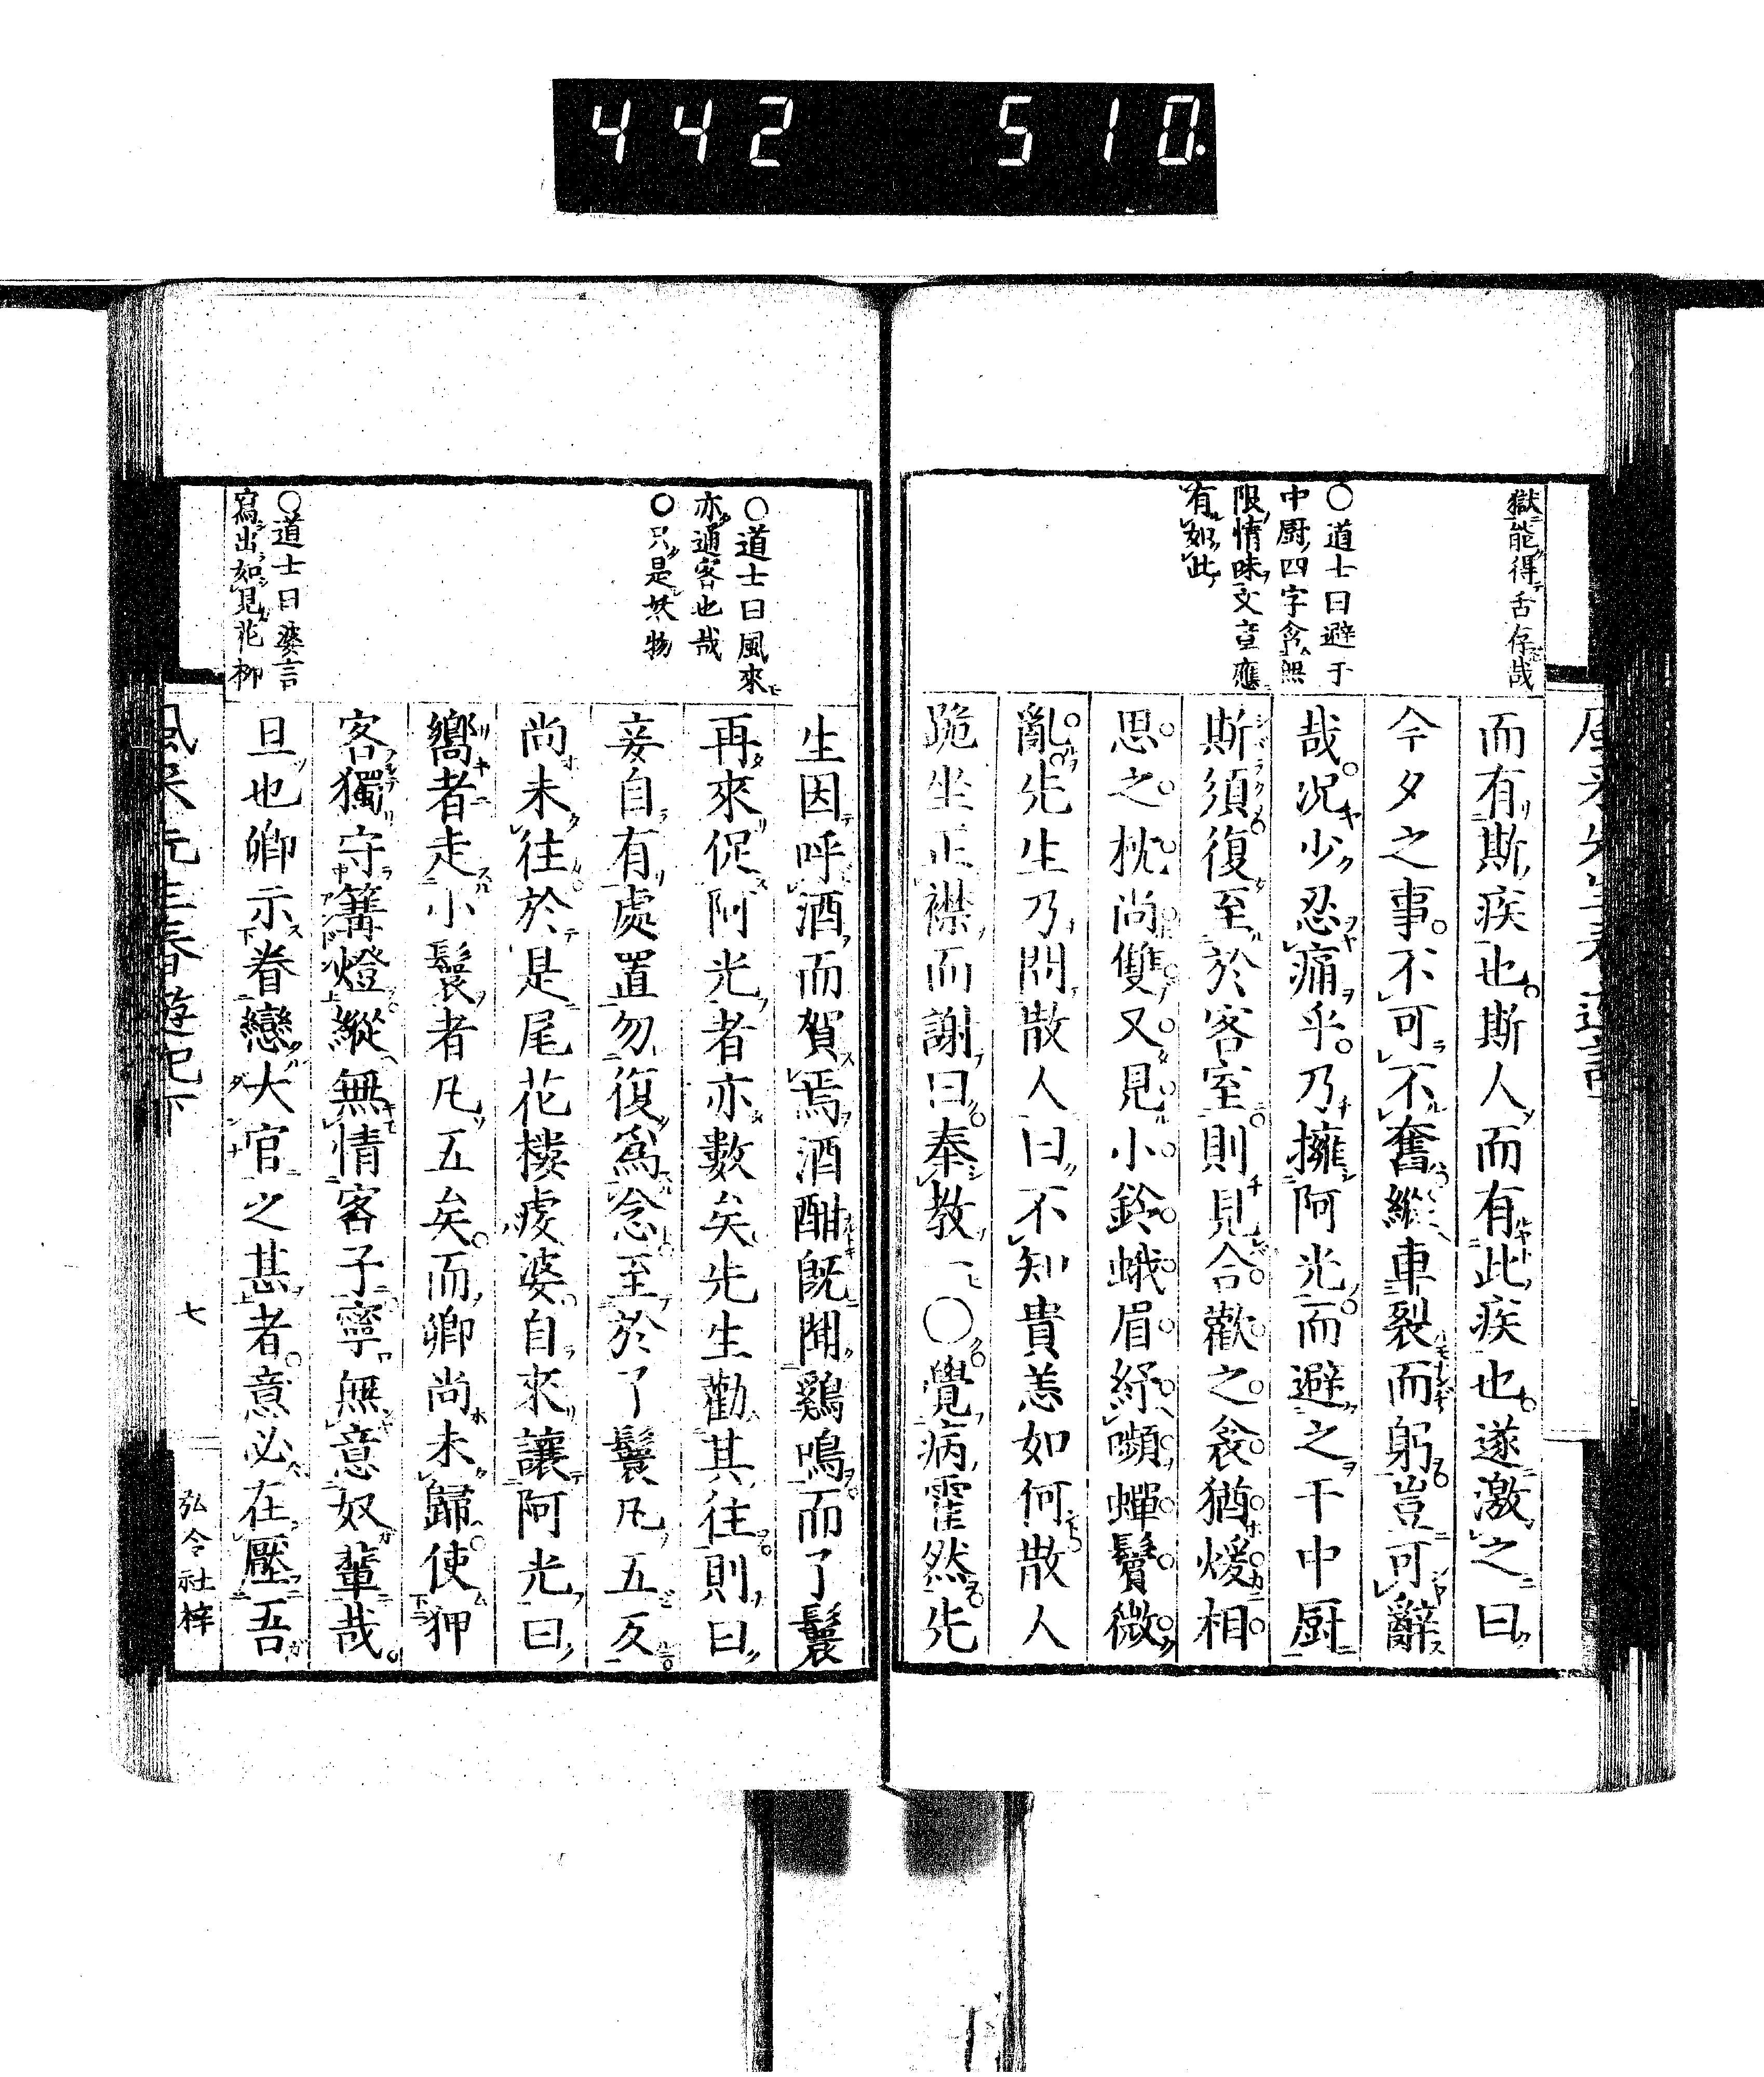 442 510.
獄能得舌存哉
○道士曰避于
中厨四字含無
限情味文章應
有如此
而有斯疾也斯人而有此疾也遂激之曰
今夕之事不可不奮縱車裂而躬豈可辭
哉况少忍痛乎乃擁阿光而避之于中厨
斯須復至於客室則見合歡之衾猶煖相
思之枕尚雙又見小鈴蛾眉紓嚬蟬鬢微
亂先生乃問散人曰不知貴恙如何散人
跪坐正襟而謝曰奉教一○覺病霍然先
○道士曰風來
亦通客也哉
○只是妖物
○道士曰婆言
寫出如見花柳
生因呼酒而賀焉酒酣既聞鷄鳴而了鬟
再來促阿光者亦數矣先生勸其往則曰
妾自有處置勿復爲念至於了鬟凡五反
尚未往於是尾花樓婆自來讓阿光曰
嚮者走小鬟者凡五矣而卿尚未歸使狎
客獨守篝燈縱無情客子寧無意奴輩哉
旦也卿示眷戀大官之甚者意必在壓吾
風來先生春遊記下
七
弘令社梓